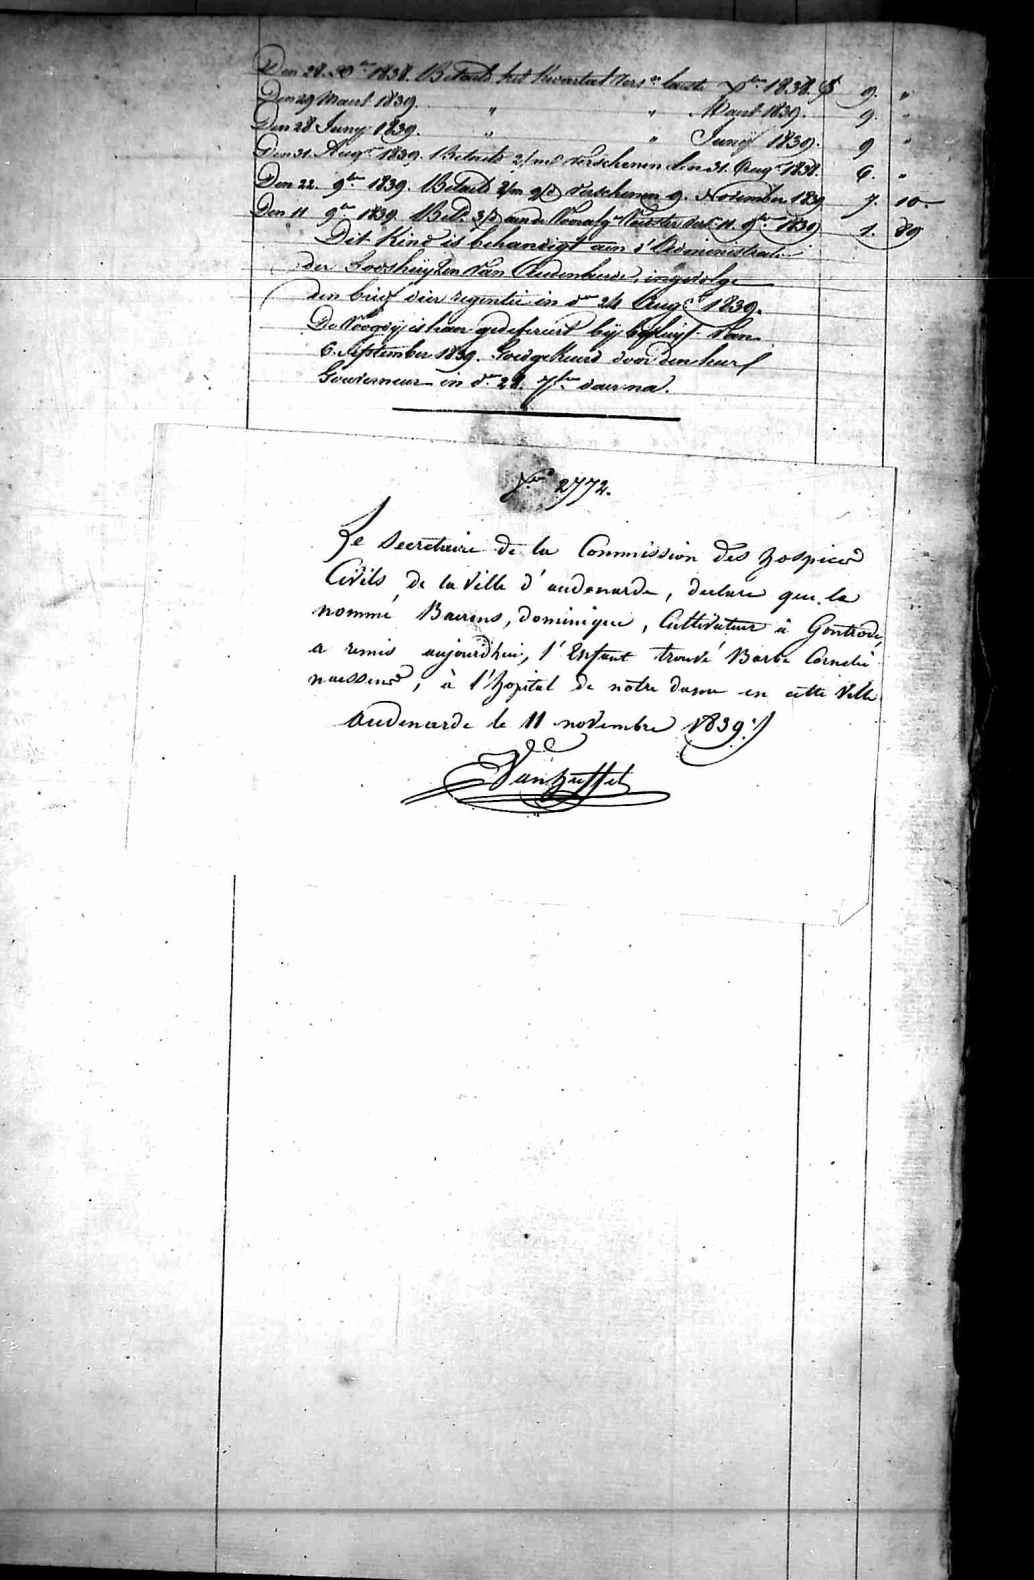 Den 28. Xber 1838. Betaald het kwartaal vers. laatst. Xber 1838. ƒ 9. "
Den 29 Maart 1839. " " Maart 1839. 9. "
Den 28 Juny 1839. " " Juny 1839. 9 "
Den 31. Augt 1839. Betaald 2/md verschenen den 31. Augt 1839. 6. "
Den 22. 9ber 1839. Betaald verschenen 9. November 1839 7. 10
Den 11 9ber 1839. Bet. aan de 11. 9ber 1839 1. 89
Dit Kind is behandigt aan d'Administratie
der Godshuyzen van Audenaerde, ingevolge
den brief dier regentie in dn 24 Augt 1839.
De Voogdij is haer gedefereert bij besluijt van
6. September 1839. Goedgekeurd door den heer
Gouverneur in dn 28. 7ber daer na.
No 2772.
Le Secretaire de la Commission des hospices
Civils de la Ville d'audenarde, declare que le
nommé Baerens, dominique, Cultivateur à Gontrode,
a remis aujourdhui, l'Enfant trouvé Barbe Cornelie
naessens, à l'hopital de notre dame en cette Ville
audenarde le 11 novembre 1839.
Vanheffel